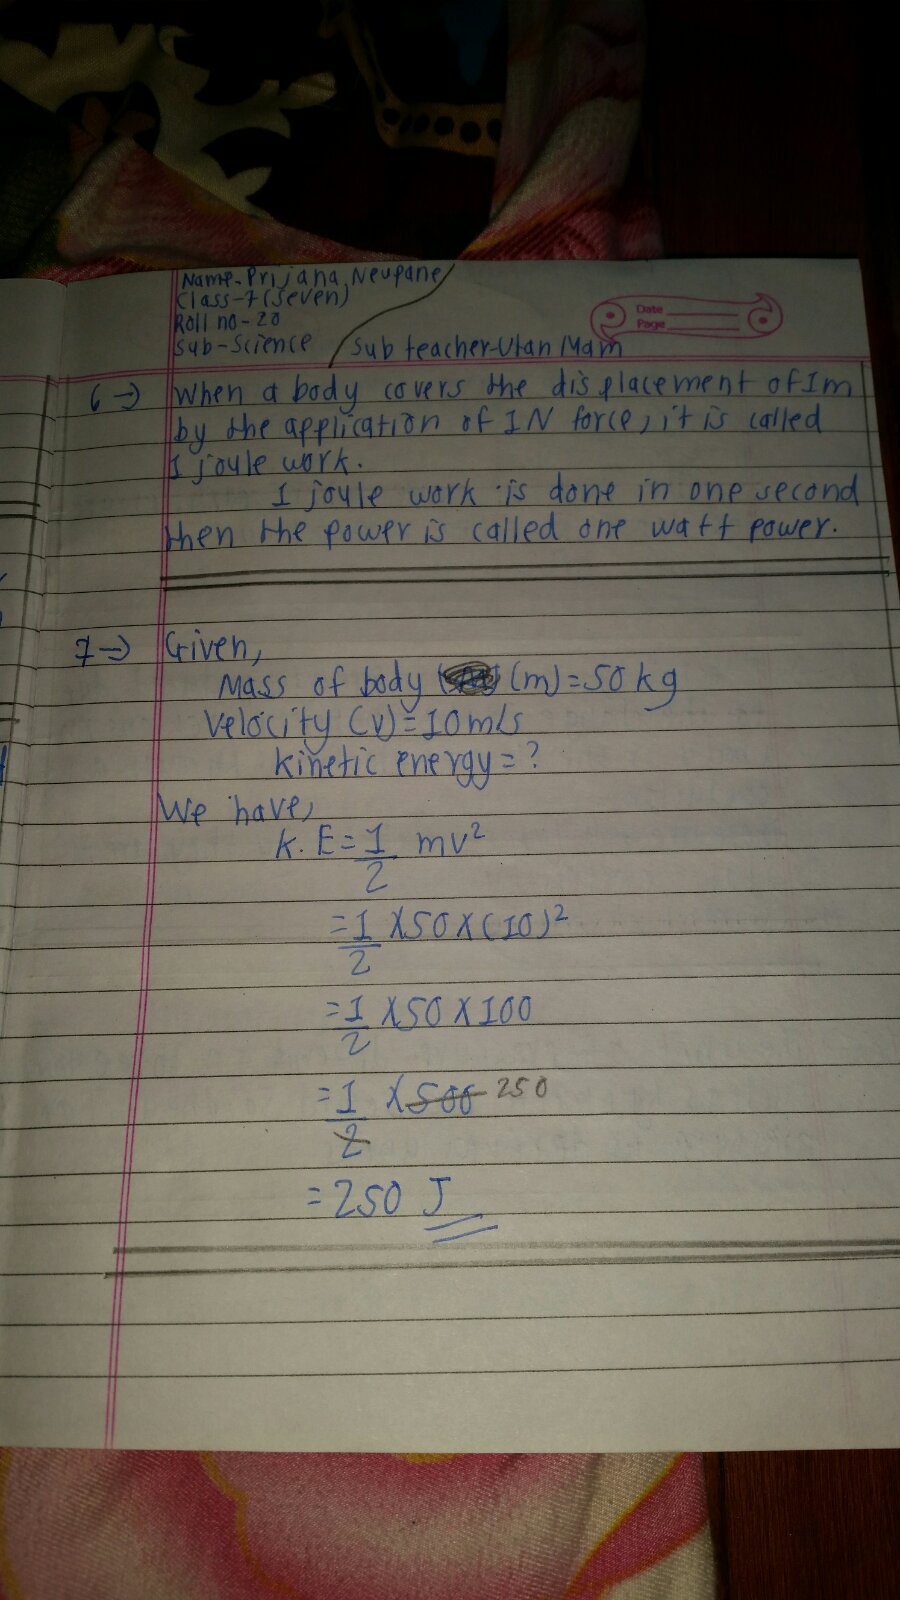 Name- Prijana Neupane
Class-7 (Seven)
Roll no-20
Sub-Science
Sub teacher-Utan Mam
Date
Page
6→ When a body covers the displacement of 1m
by the application of 1N force, it is called
1 joule work.
1 joule work is done in one second
then the power is called one watt power.
7→ Given,
Mass of body (m)=50kg
Velocity (v)=10m/s
kinetic energy=?
We have,
K.E=1/2 mv²
=1/2 X50X(10)²
=1/2 X50X100
=1/2 X500 250
=250 J